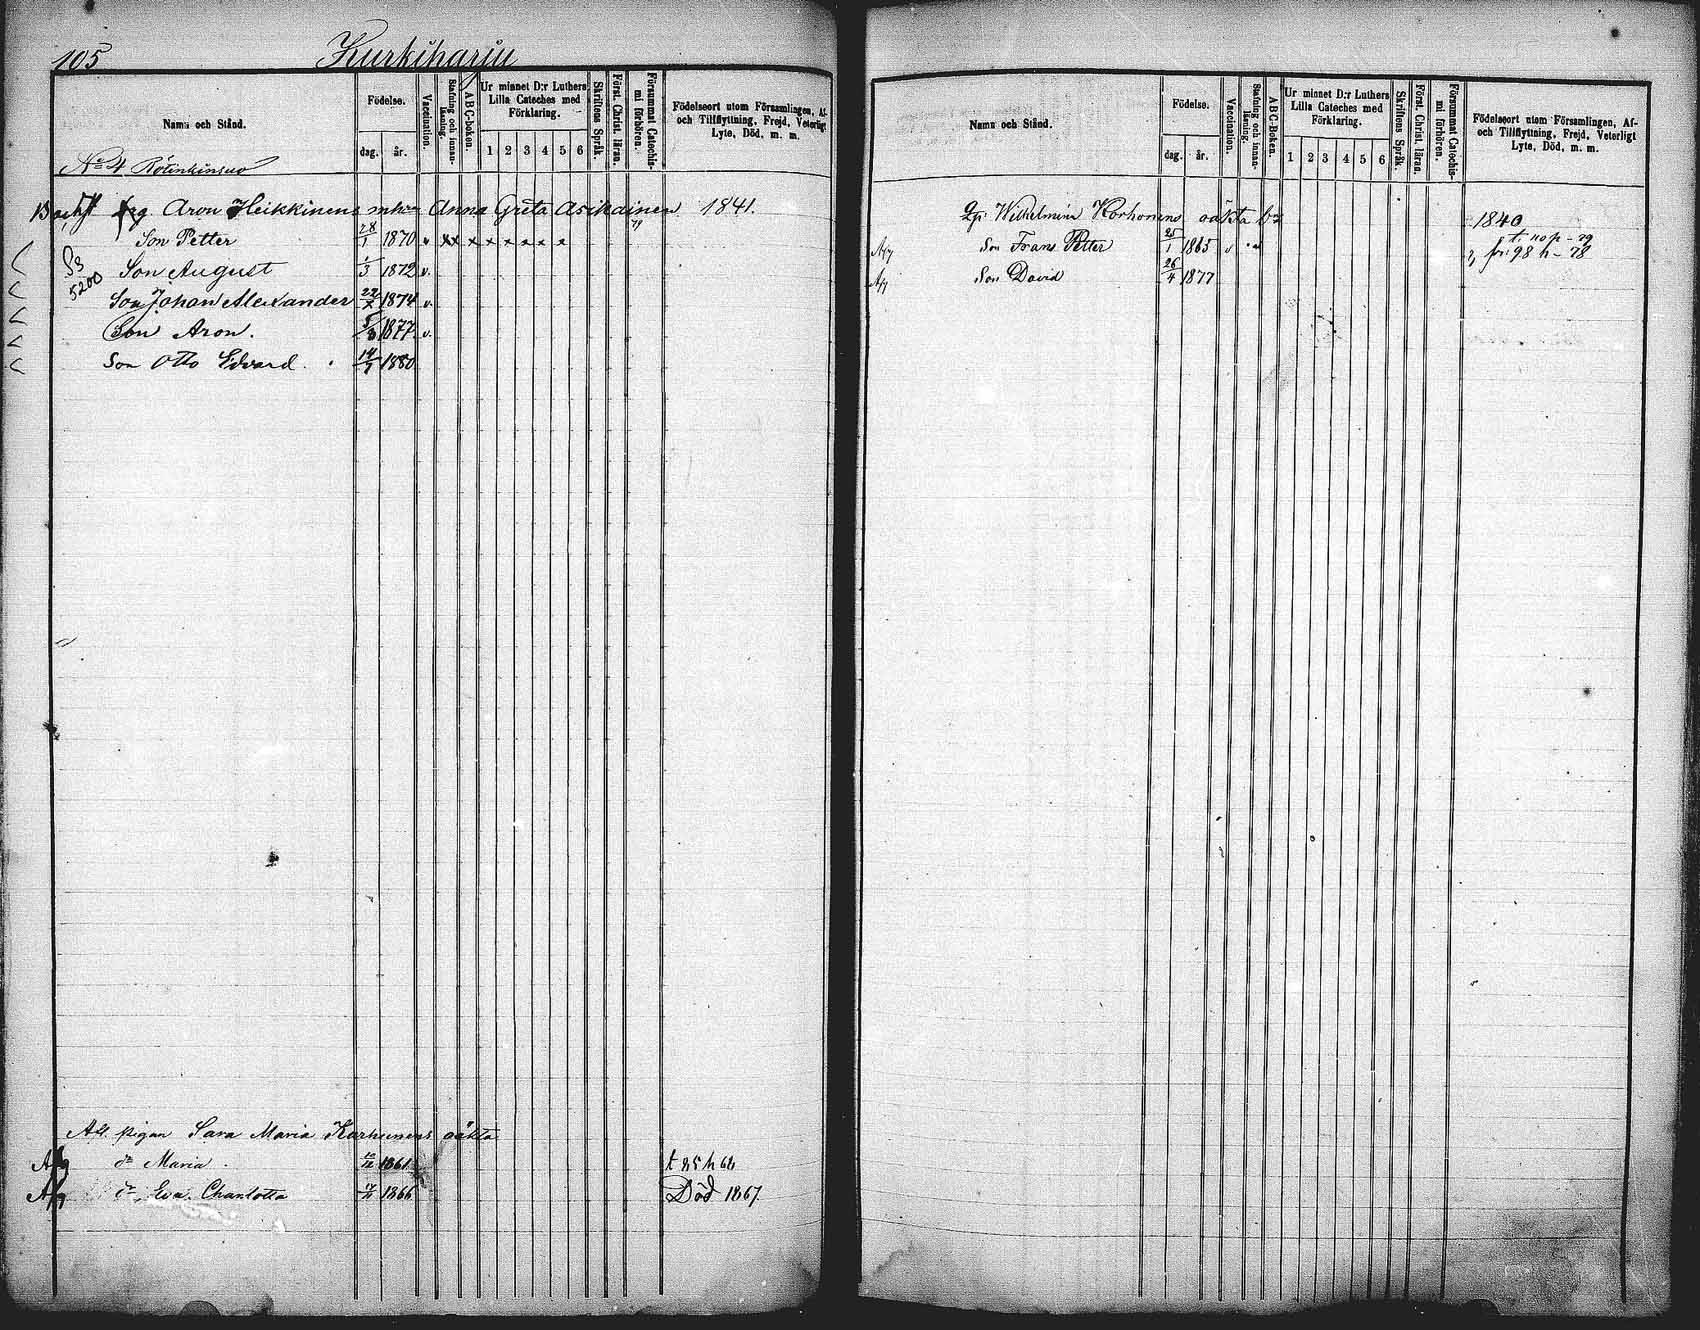 105 Kurkiharju
Namn och Stånd.
Födelse.
dag. år.
Vaccination.
Stafning och innanläsning.
ABC-boken.
Ur minnet D:r Luthers Lilla Cateches med Förklaring.
1 2 3 4 5 6
Skriftens Språk.
Först. Christ. läran.
Försummat Catechismi förhören.
Födelseort utom Församlingen, Af- och Tillflyttning, Frejd, Veterligt Lyte, Död, m. m.
No 4
Aron Heikkinens Anna Greta Asikainen 1841.
79
Son Petter 28/1 1870 v xx x x x x x x
53
5200
Son August 1/3 1872 v.
Son Johan Alexander 1874 v.
Son Aron. 1877. v.
Son Otto Edvard. 1880
pigan Sara Maria Korhonens oäkta
dr Maria. 1861 t 85 h 62
dr Eva Charlotta 1866 Död 1867.
Namn och Stånd.
Födelse.
dag. år.
Vaccination.
Stafning och innanläsning.
ABC-Boken.
Ur minnet D:r Luthers Lilla Cateches med Förklaring.
1 2 3 4 5 6
Skriftens Språk.
Först. Christ. läran.
Försummat Catechismi förhören.
Födelseort utom Församlingen, Af- och Tillflyttning, Frejd, Veterligt Lyte, Död, m. m.
Wilhelmina Korhonens oäkta 1840
Son Frans Petter 25/1 1865 v
fr: 98 h - 78
Son David 26/4 1877